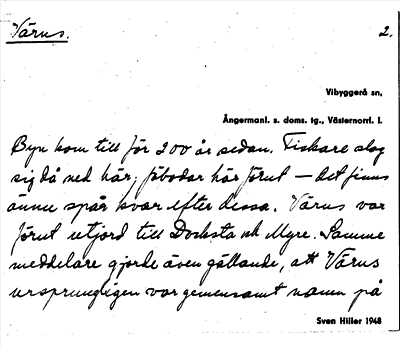 Värns.
2.
Vibyggerå sn,
Ångermanl. s. doms. tg., Västernorrl. l.
Byn kom till för 200 år sedan. Fiskare slog
sig då ned här; fäbodar här förut — det finns
ännu spår kvar efter dessa. Värns var
förut utjord till Docksta och Myre. Samme
meddelare gjorde även gällande, att Värns
ursprungligen var gemensamt namn på
Sven Hiller 1948